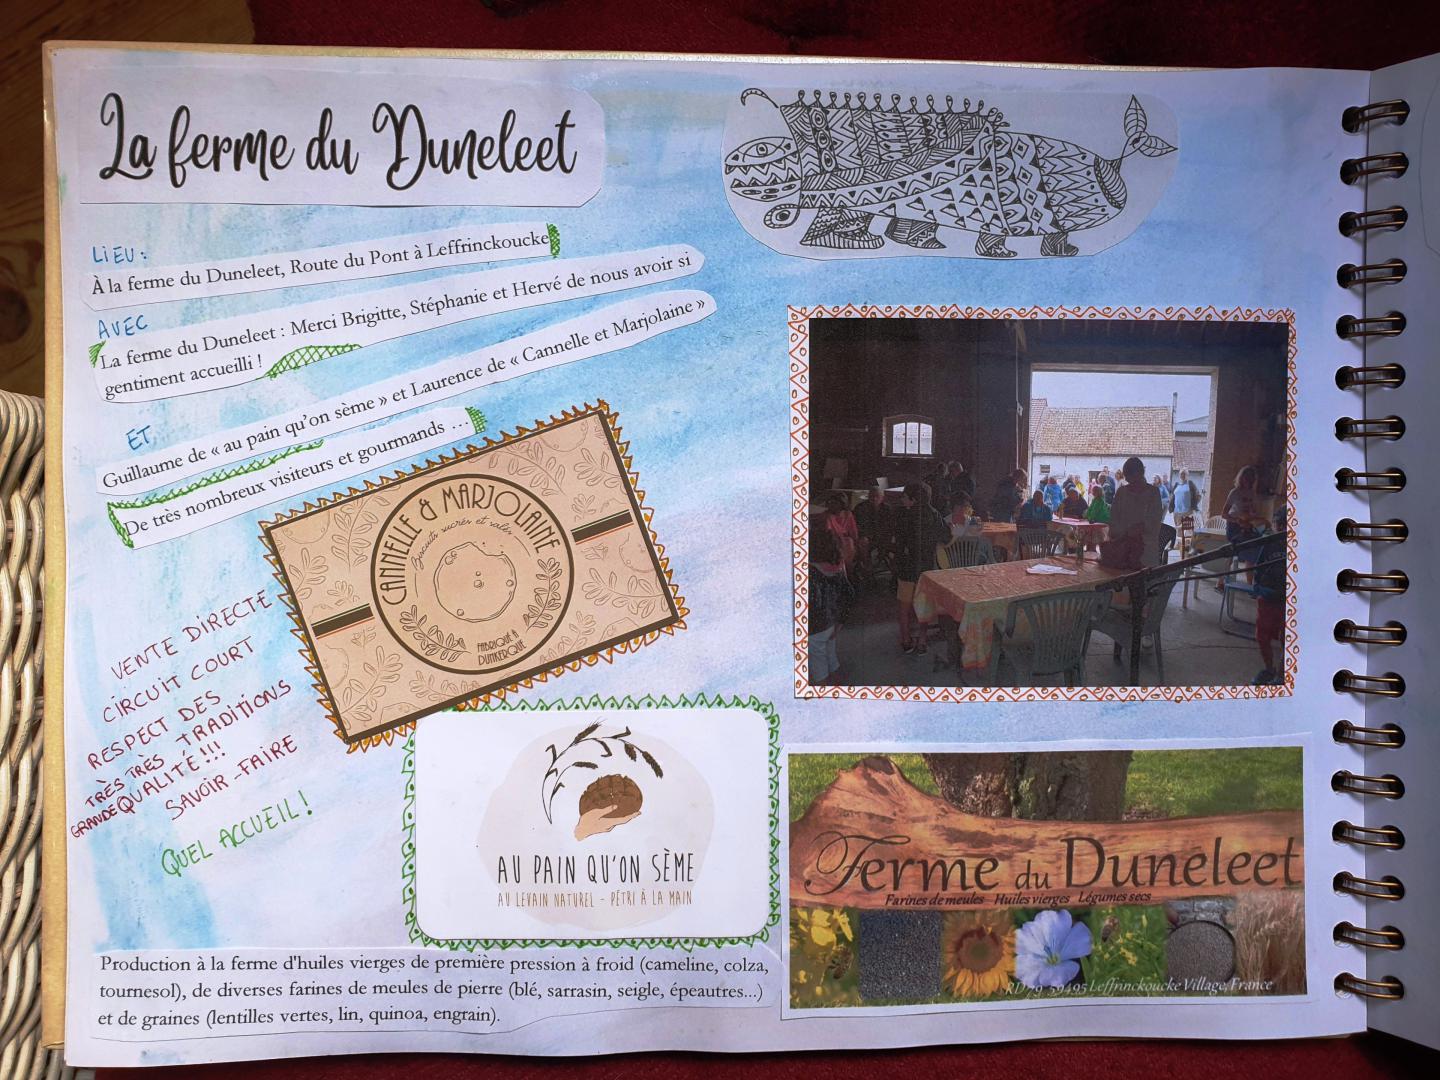 La ferme du Duneleet
LIEU :
À la ferme du Duneleet, Route du Pont à Leffrinckoucke
AVEC
La ferme du Duneleet : Merci Brigitte, Stéphanie et Hervé de nous avoir si
gentiment accueilli !
ET
Guillaume de « au pain qu'on sème » et Laurence de « Cannelle et Marjolaine »
De très nombreux visiteurs et gourmands …
CANNELLE & MARJOLAINE
Biscuits sucrés et salés
FABRIQUÉ À
DUNKERQUE
VENTE DIRECTE
CIRCUIT COURT
RESPECT DES
TRADITIONS
TRÈS TRÈS
GRANDE QUALITÉ !!!
SAVOIR-FAIRE
QUEL ACCUEIL !
AU PAIN QU'ON SÈME
AU LEVAIN NATUREL - PÉTRI À LA MAIN
Ferme du Duneleet
Farines de meules Huiles vierges Légumes secs
RD79 59495 Leffrinckoucke Village, France
Production à la ferme d'huiles vierges de première pression à froid (cameline, colza,
tournesol), de diverses farines de meules de pierre (blé, sarrasin, seigle, épeautres...)
et de graines (lentilles vertes, lin, quinoa, engrain).